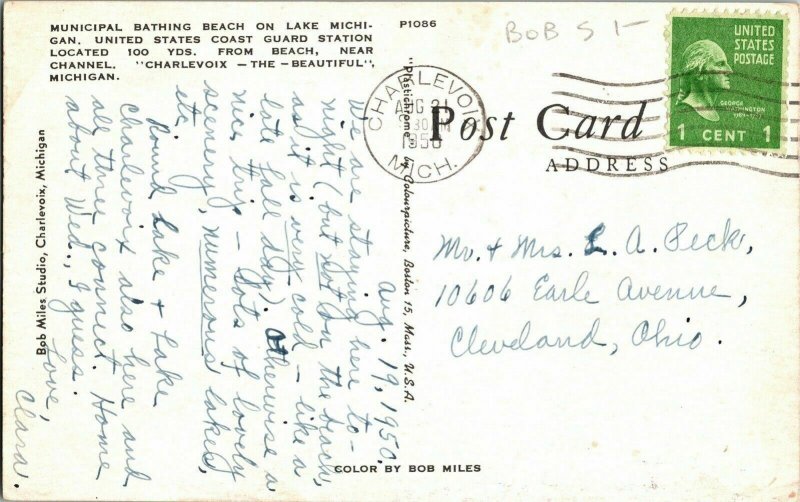 MUNICIPAL BATHING BEACH ON LAKE MICHI-
GAN. UNITED STATES COAST GUARD STATION
LOCATED 100 YDS. FROM BEACH, NEAR
CHANNEL. "CHARLEVOIX — THE — BEAUTIFUL",
MICHIGAN.
P1086
BOB S 1-
UNITED
STATES
POSTAGE
GEORGE
WASHINGTON
1 CENT 1
CHARLEVOIX
AUG 21
1950
MICH.
Post Card
ADDRESS
Aug. 19, 1950.
We are staying here to-
night (but not on the beach,
as it is very cold - like a
late fall day). Otherwise a
nice trip - lots of lovely
scenery, numerous lakes,
etc.
Round Lake & Lake
Charlevoix also here and
all three connect. Home
about Wed., I guess.
Love,
Clara.
Mr. & Mrs. L. A. Peck,
10606 Earle Avenue,
Cleveland, Ohio.
Bob Miles Studio, Charlevoix, Michigan
"Plastichrome" by Colourpicture, Boston 15, Mass., U.S.A.
COLOR BY BOB MILES